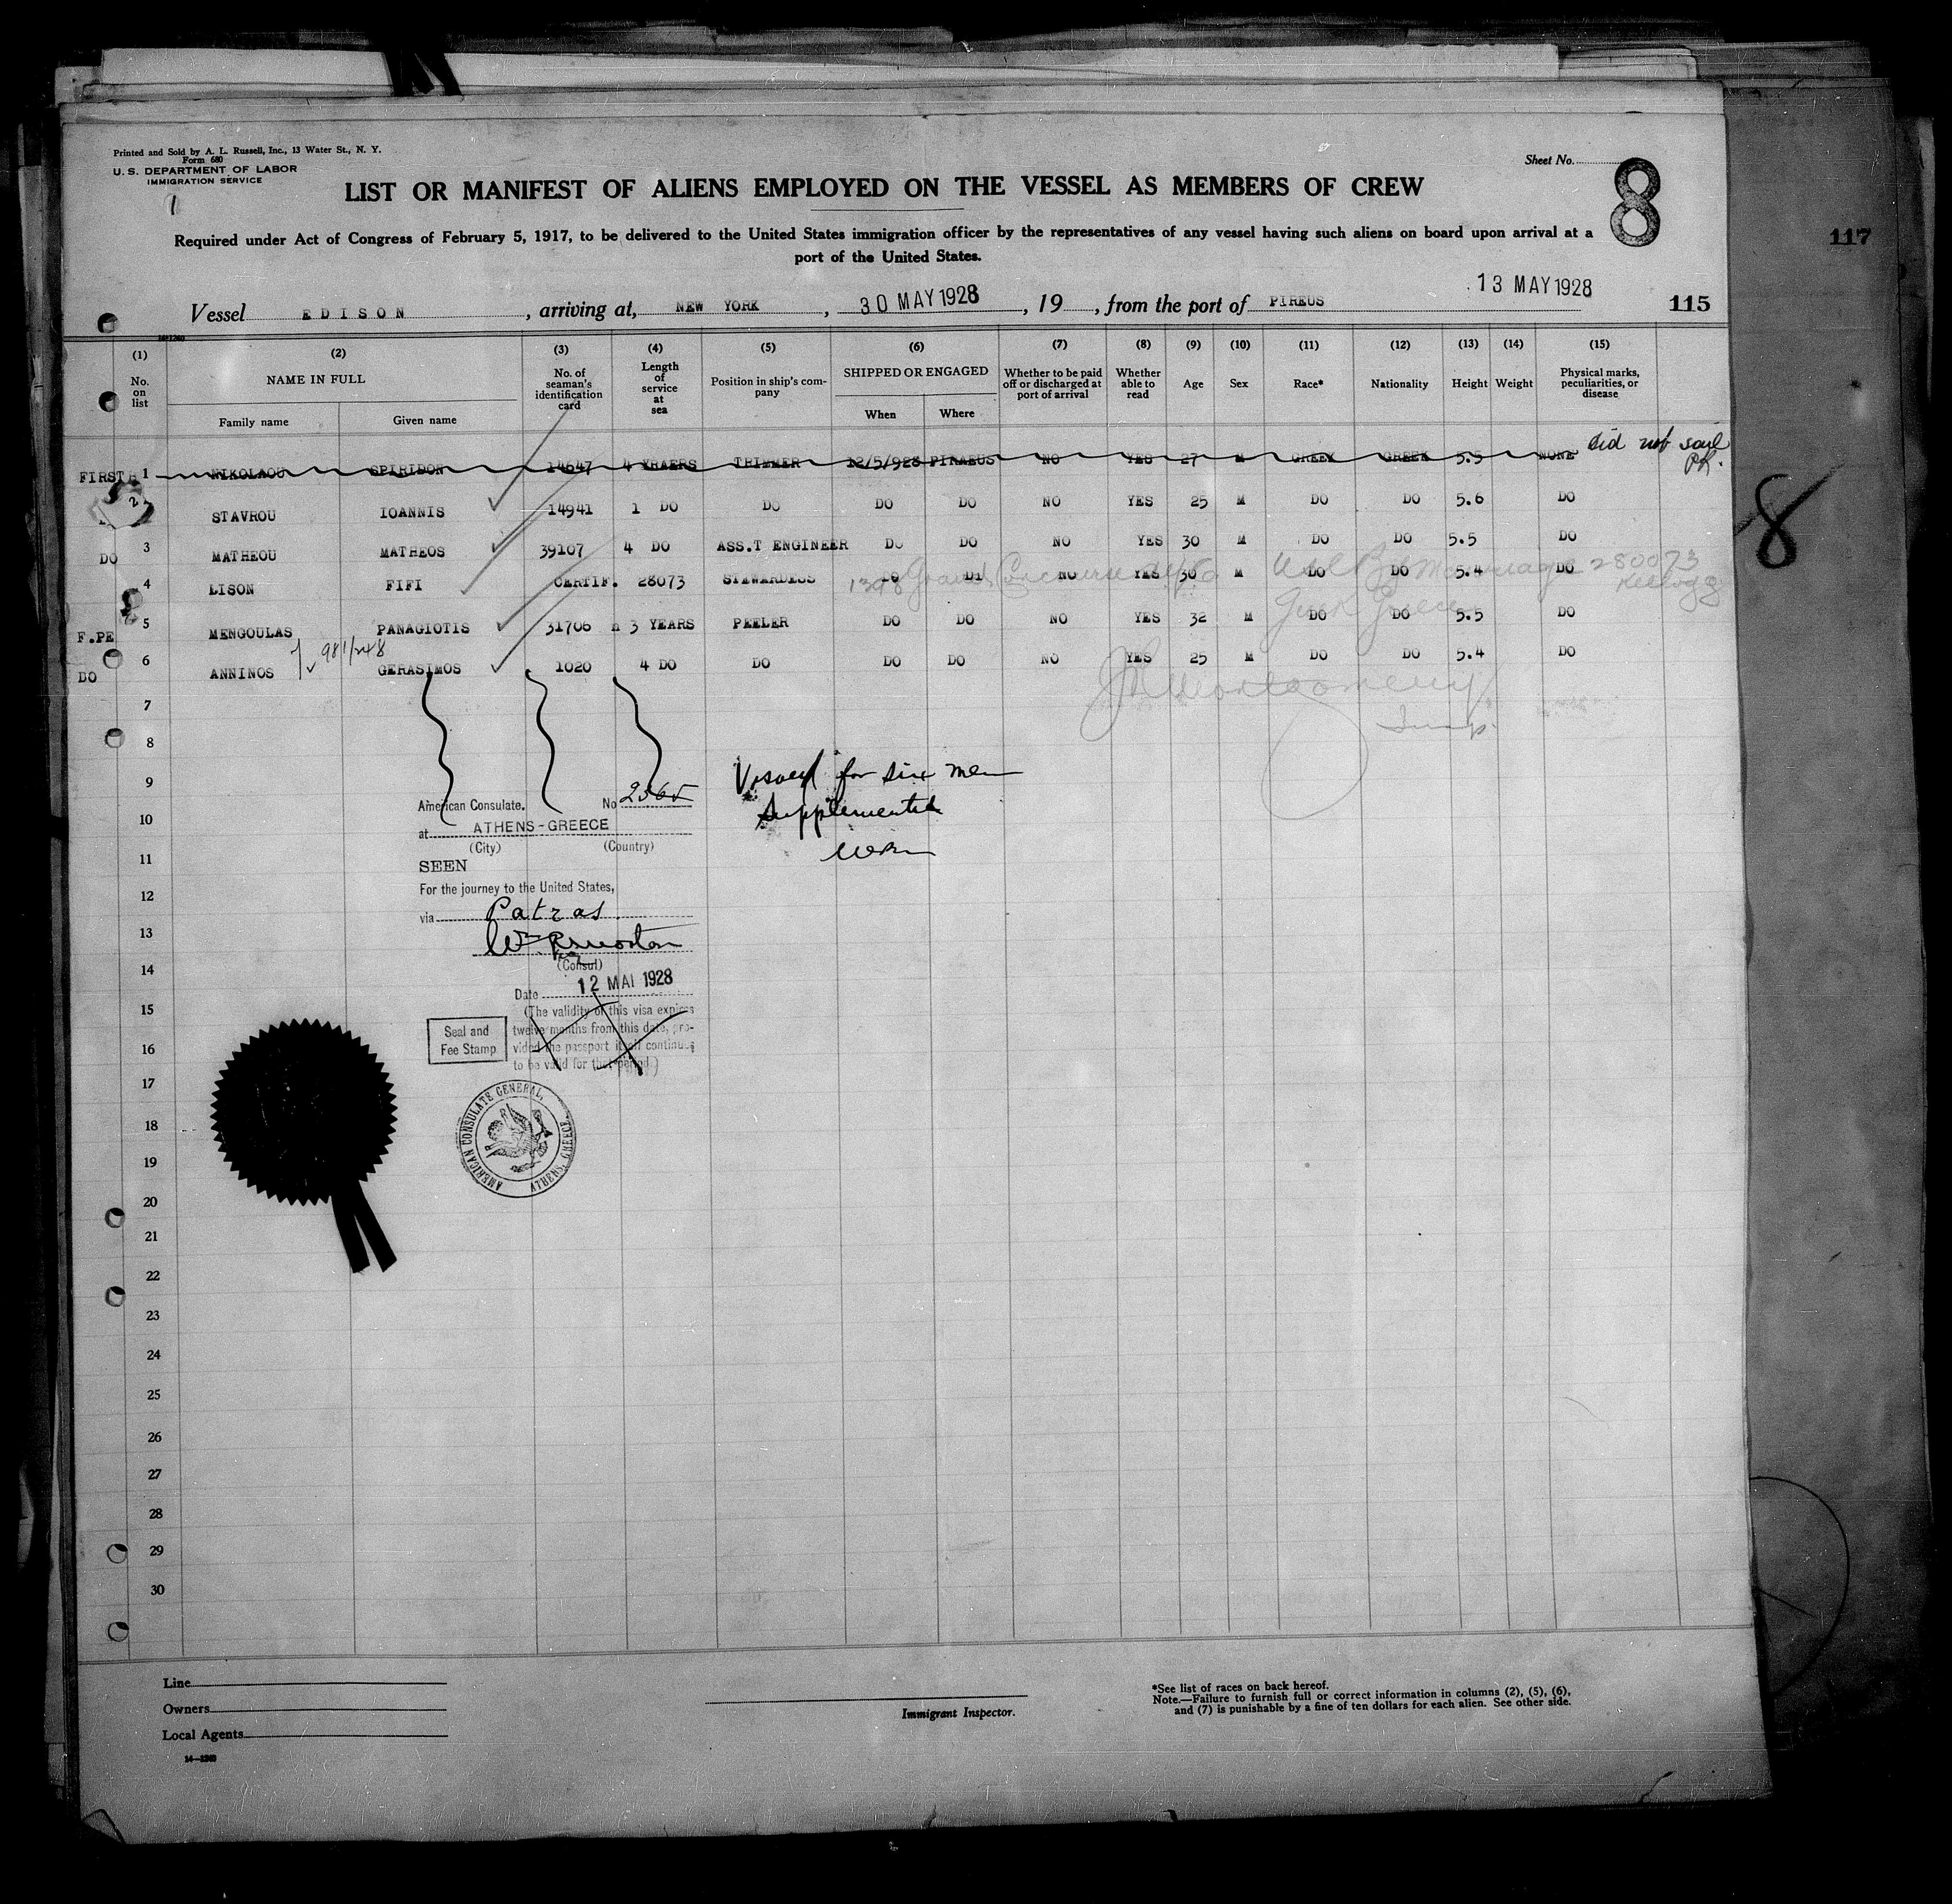 Printed and Sold by A. L. Russell, Inc., 13 Water St., N. Y.
Form 680
U. S. DEPARTMENT OF LABOR
IMMIGRATION SERVICE
Sheet No.
8
LIST OR MANIFEST OF ALIENS EMPLOYED ON THE VESSEL AS MEMBERS OF CREW
Required under Act of Congress of February 5, 1917, to be delivered to the United States immigration officer by the representatives of any vessel having such aliens on board upon arrival at a
port of the United States.
117
Vessel EDISON, arriving at, NEW YORK, 30 MAY 1928, 19, from the port of PIREUS 13 MAY 1928
115
(1) (2) (3) (4) (5) (6) (7) (8) (9) (10) (11) (12) (13) (14) (15)
No. on list NAME IN FULL No. of seaman's identification card Length of service at sea Position in ship's company SHIPPED OR ENGAGED Whether to be paid off or discharged at port of arrival Whether able to read Age Sex Race* Nationality Height Weight Physical marks, peculiarities, or disease
Family name Given name When Where
did not sail
PK.
FIRST 1 NIKOLAOU SPIRIDON 14647 4 YRAERS TRIMMER 12/5/928 PIRAEUS NO YES 27 M GREEK GREEK 5.5 NONE
2 STAVROU IOANNIS 14941 1 DO DO DO DO NO YES 25 M DO DO 5.6 DO
DO 3 MATHEOU MATHEOS 39107 4 DO ASS.T ENGINEER DO DO NO YES 30 M DO DO 5.5 DO
4 LISON FIFI CERTIF. 28073 STEWARDESS DO DO NO YES 30 M DO DO 5.4 DO
1398 Grand Concourse
Marriage 280073
Kellogg
F.PE 5 MENGOULAS PANAGIOTIS 31706 3 YEARS PEELER DO DO NO YES 32 M DO DO 5.5 DO
DO 6 ANNINOS 981/248 GERASIMOS 1020 4 DO DO DO DO NO YES 25 M DO DO 5.4 DO
Montgomery
Insp.
7
8
9
10
11
12
13
14
15
16
17
18
19
20
21
22
23
24
25
26
27
28
29
30
Visaed for six men
Supplemental
American Consulate. No 2365
at ATHENS-GREECE
(City) (Country)
SEEN
For the journey to the United States,
via Patras.
(Consul)
Date 12 MAI 1928
(The validity of this visa expires
twelve months from this date, pro-
vided the passport itself continues
to be valid for that period.)
Seal and
Fee Stamp
AMERICAN CONSULATE GENERAL,
ATHENS, GREECE.
8
Line
Owners
Local Agents
Immigrant Inspector.
*See list of races on back hereof.
Note.—Failure to furnish full or correct information in columns (2), (5), (6),
and (7) is punishable by a fine of ten dollars for each alien. See other side.